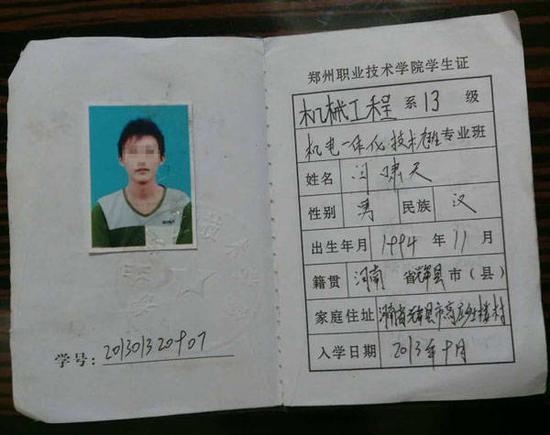 郑州职业技术学院学生证
机械工程 系 13 级
机电一体化技术 专业班
姓名 闫啸天
性别 男 民族 汉
出生年月 1994 年 11 月
籍贯 河南 省辉县市(县)
家庭住址 河南省辉县市 村
入学日期 2013年9月
学号: 201301320907